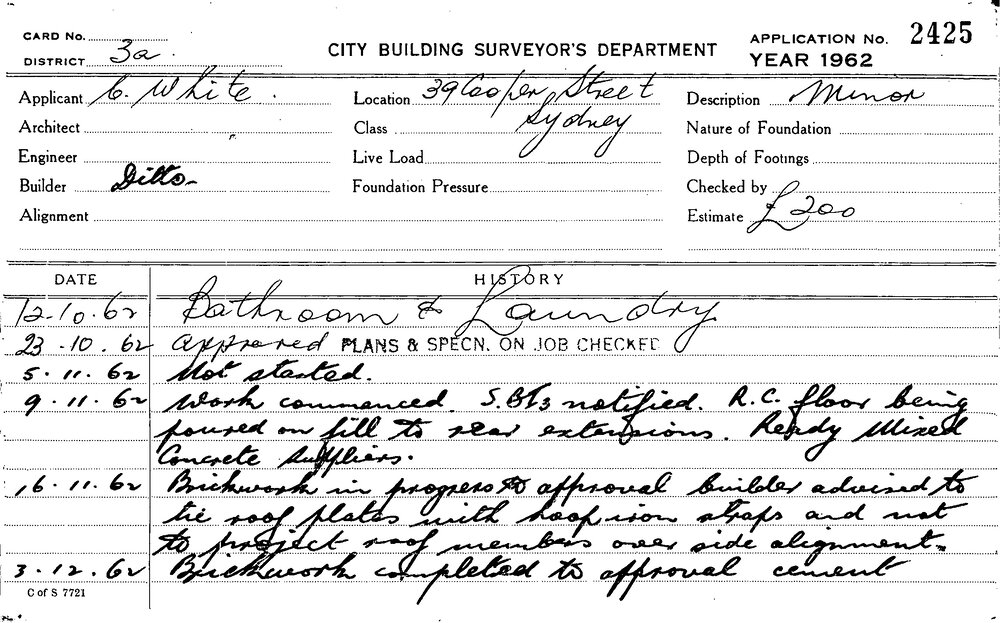 CARD No.
DISTRICT 3a.
CITY BUILDING SURVEYOR'S DEPARTMENT
APPLICATION No. 2425
YEAR 1962
Applicant C. White.
Location 39 Cooper Street
Sydney
Description Minor
Architect
Class
Nature of Foundation
Engineer
Live Load
Depth of Footings
Builder Ditto
Foundation Pressure
Checked by
Alignment
Estimate £200
DATE HISTORY
12.10.62 Bathroom & Laundry
23.10.62 Approved PLANS & SPECN. ON JOB CHECKED
5.11.62 Not started.
9.11.62 Work commenced. notified. R.C. floor being
poured on fill to rear extensions. Ready Mixed
Concrete Suppliers.
16.11.62 Brickwork in progress to approval builder advised to
tie roof plates with hoop iron straps and not
to project roof members over side alignment.
3.12.62 Brickwork completed to approval cement
C of S 7721